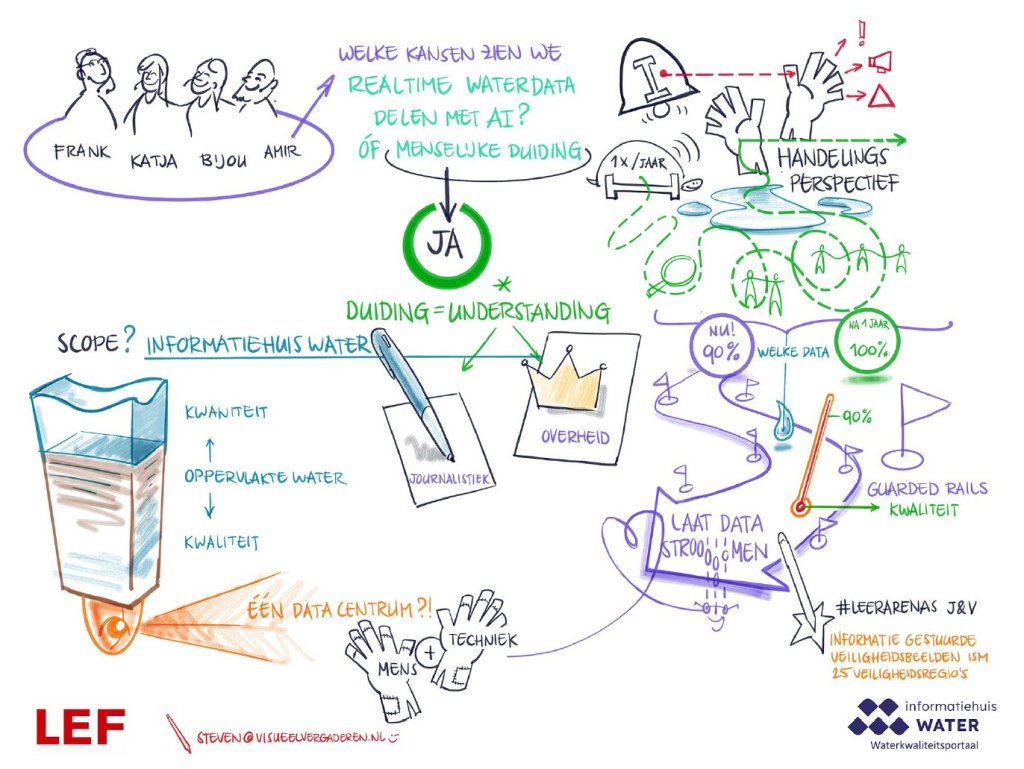 FRANK
KATJA
BIJOU
AMIR
WELKE KANSEN ZIEN WE
REALTIME WATERDATA
DELEN MET AI?
ÓF MENSELIJKE DUIDING
JA
I
1X/JAAR
HANDELINGS
PERSPECTIEF
*
DUIDING = UNDERSTANDING
SCOPE? INFORMATIEHUIS WATER
KWANITEIT
OPPERVLAKTE WATER
KWALITEIT
JOURNALISTIEK
OVERHEID
NU!
90%
WELKE DATA
NA 1 JAAR
100%
90%
GUARDED RAILS
KWALITEIT
LAAT DATA
STROOOMEN
ÉÉN DATA CENTRUM?!
MENS + TECHNIEK
#LEERARENAS J&V
INFORMATIE GESTUURDE
VEILIGHEIDSBEELDEN ISM
25 VEILIGHEIDSREGIO'S
LEF
STEVEN@VISUEELVERGADEREN.NL
informatiehuis
WATER
Waterkwaliteitsportaal